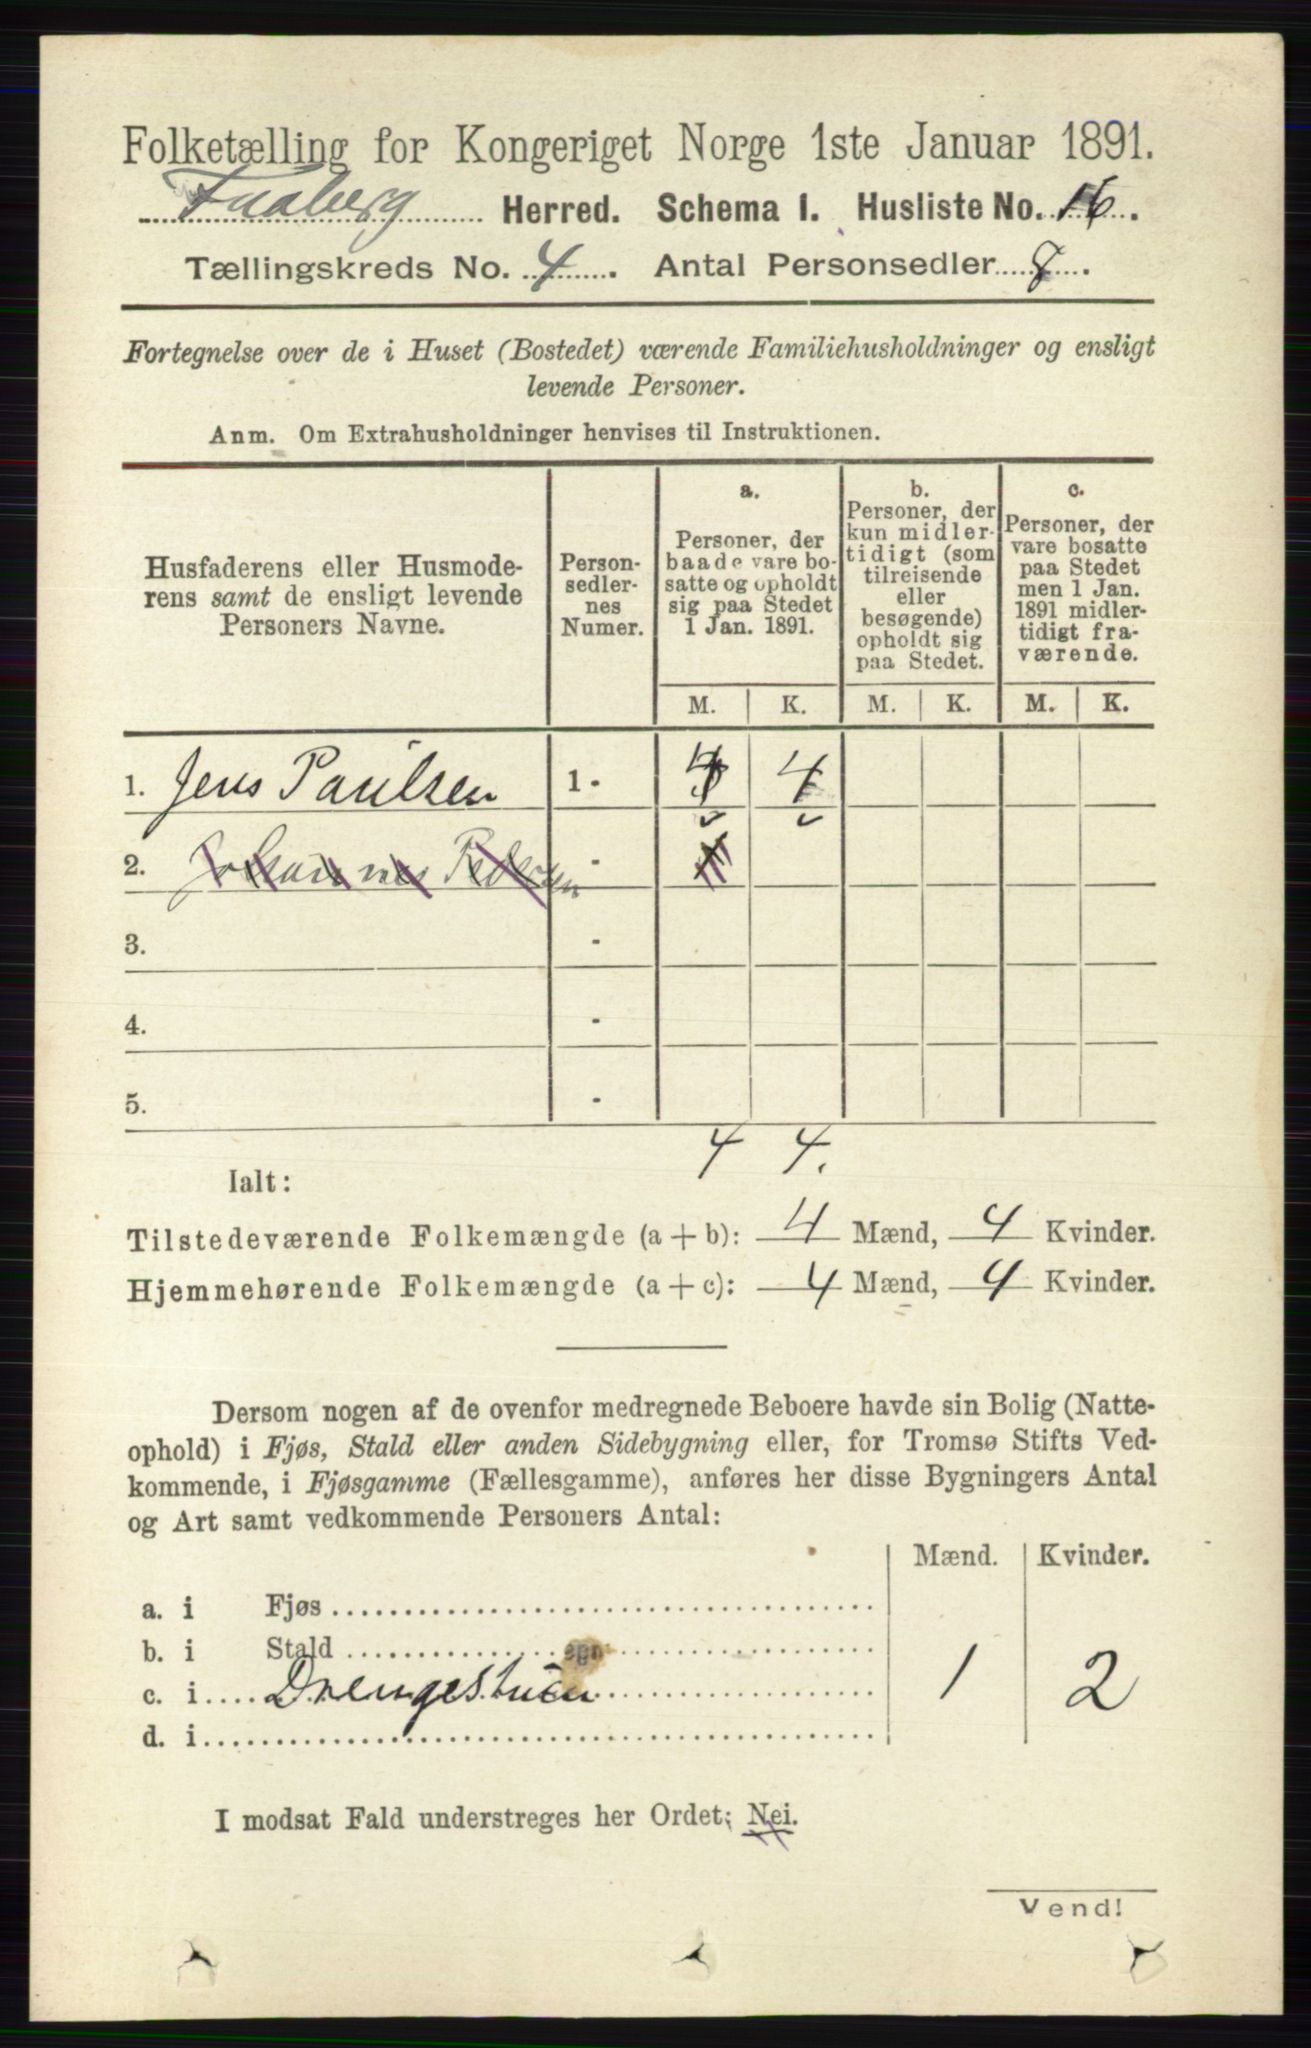 Folketælling for Kongeriget Norge 1ste Januar 1891.
Faaberg Herred. Schema 1. Husliste No. 16.
Tællingskreds No. 4. Antal Personsedler 8.
Fortegnelse over de i Huset (Bostedet) værende Familiehusholdninger og ensligt
levende Personer.
Anm. Om Extrahusholdninger henvises til Instruktionen.
Husfaderens eller Husmode-
rens samt de ensligt levende
Personers Navne.
Person-
sedler-
nes
Numer.
a.
Personer, der
baade vare bo-
satte og opholdt
sig paa Stedet
1 Jan. 1891.
b.
Personer, der
kun midler-
tidigt (som
tilreisende
eller
besøgende)
opholdt sig
paa Stedet.
c.
Personer, der
vare bosatte
paa Stedet
men 1 Jan.
1891 midler-
tidigt fra-
værende.
M. K. M. K. M. K.
1. Jens Paulsen 1 - 4 4
2. Johannes Pedersen -
3. -
4. -
5. -
4 4.
Ialt:
Tilstedeværende Folkemængde (a + b): 4 Mænd, 4 Kvinder.
Hjemmehørende Folkemængde (a + c): 4 Mænd, 4 Kvinder.
Dersom nogen af de ovenfor medregnede Beboere havde sin Bolig (Natte-
ophold) i Fjøs, Stald eller anden Sidebygning eller, for Tromsø Stifts Ved-
kommende, i Fjøsgamme (Fællesgamme), anføres her disse Bygningers Antal
og Art samt vedkommende Personers Antal:
Mænd. Kvinder.
a. i Fjøs
b. i Stald
c. i Drengestuen 1 2
d. i
I modsat Fald understreges her Ordet: Nei.
Vend!